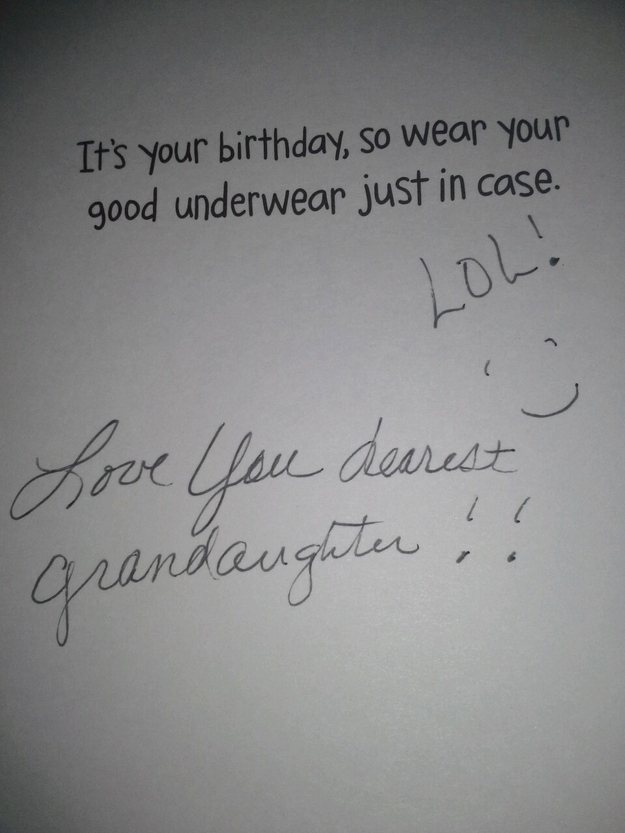 It's your birthday, so wear your
good underwear just in case.
LOL!
Love You dearest
grandaughter !!